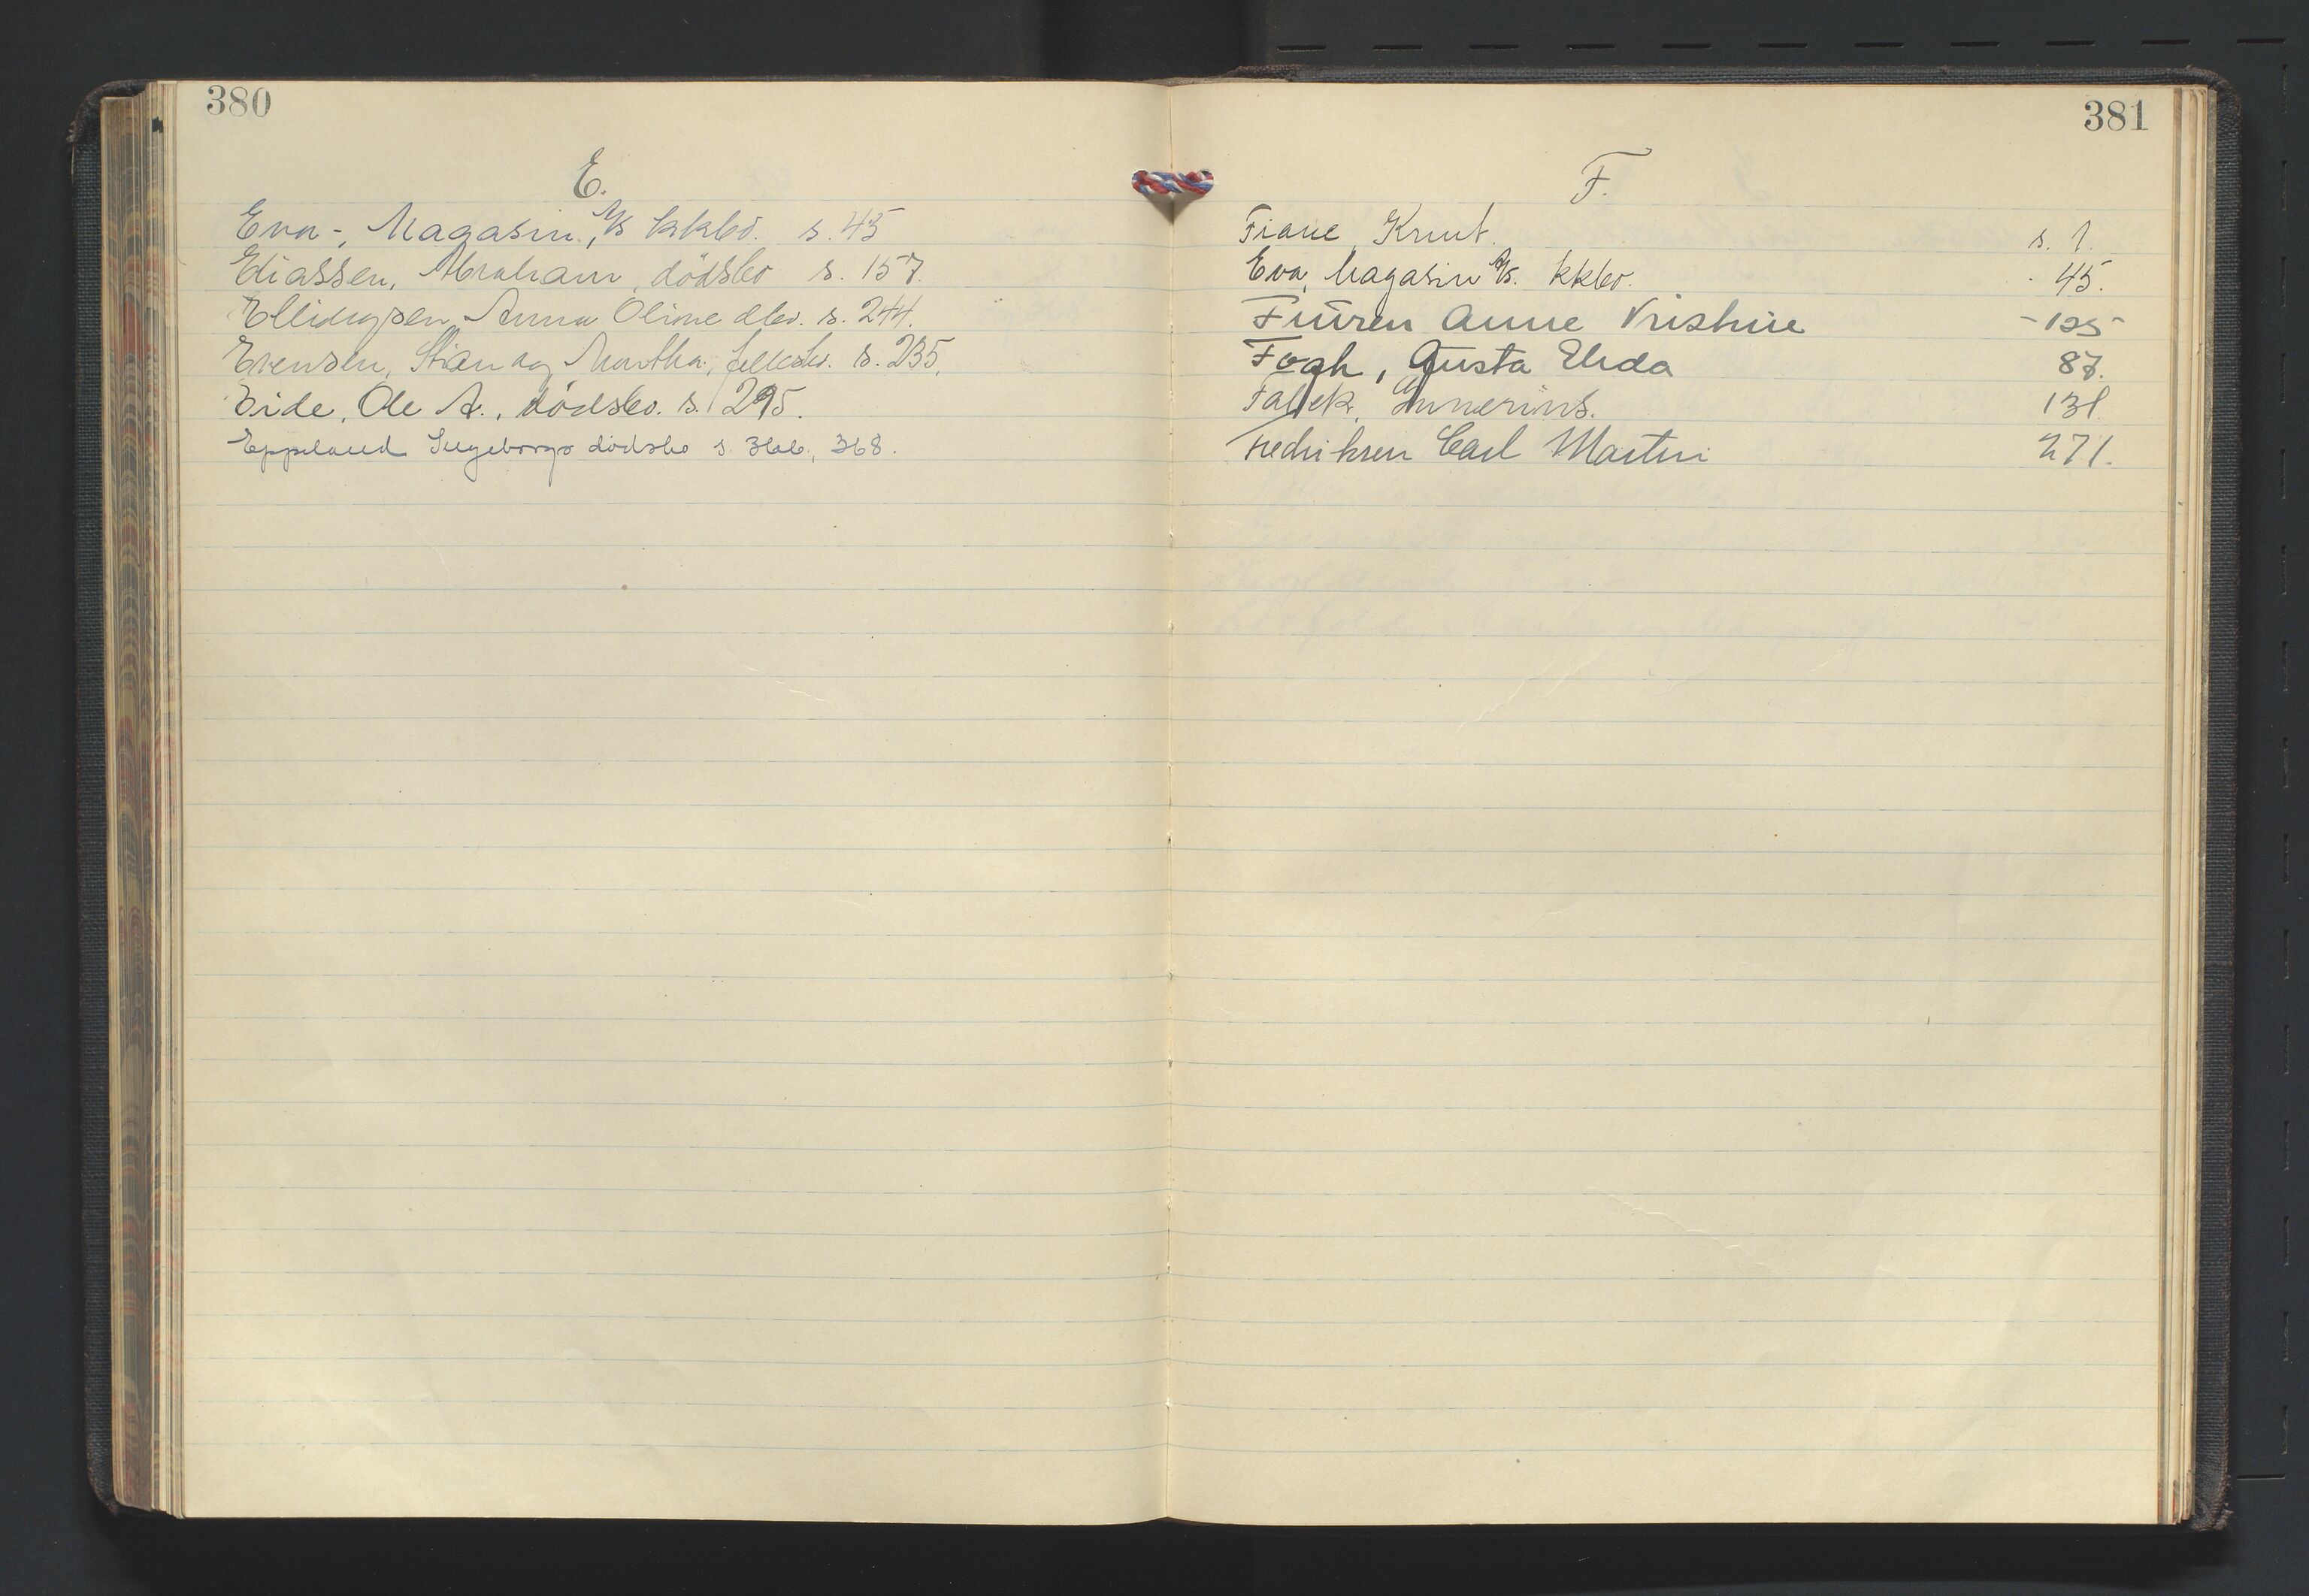 380
E.
Eva-, Magasin, A/S kkbo. s. 45
Eliassen, Abraham, dödsbo s. 157.
Ellingsen, Anna Oline dbo. s. 244.
Evensen, Stian og Martha, fellesbo. s. 235.
Eide, Ole A., dödsbo. s. 295.
Eppeland Ingeborgs dödsbo s. 366, 368.
381
F.
Fiane, Knut. s. 1.
Eva, Magasin A/S. kkbo. - 45.
Anne Kristine - 125 -
Fogh, Gusta Elida 87.
Falck, Gunnerius. 131.
Fredriksen Carl Martin 271.